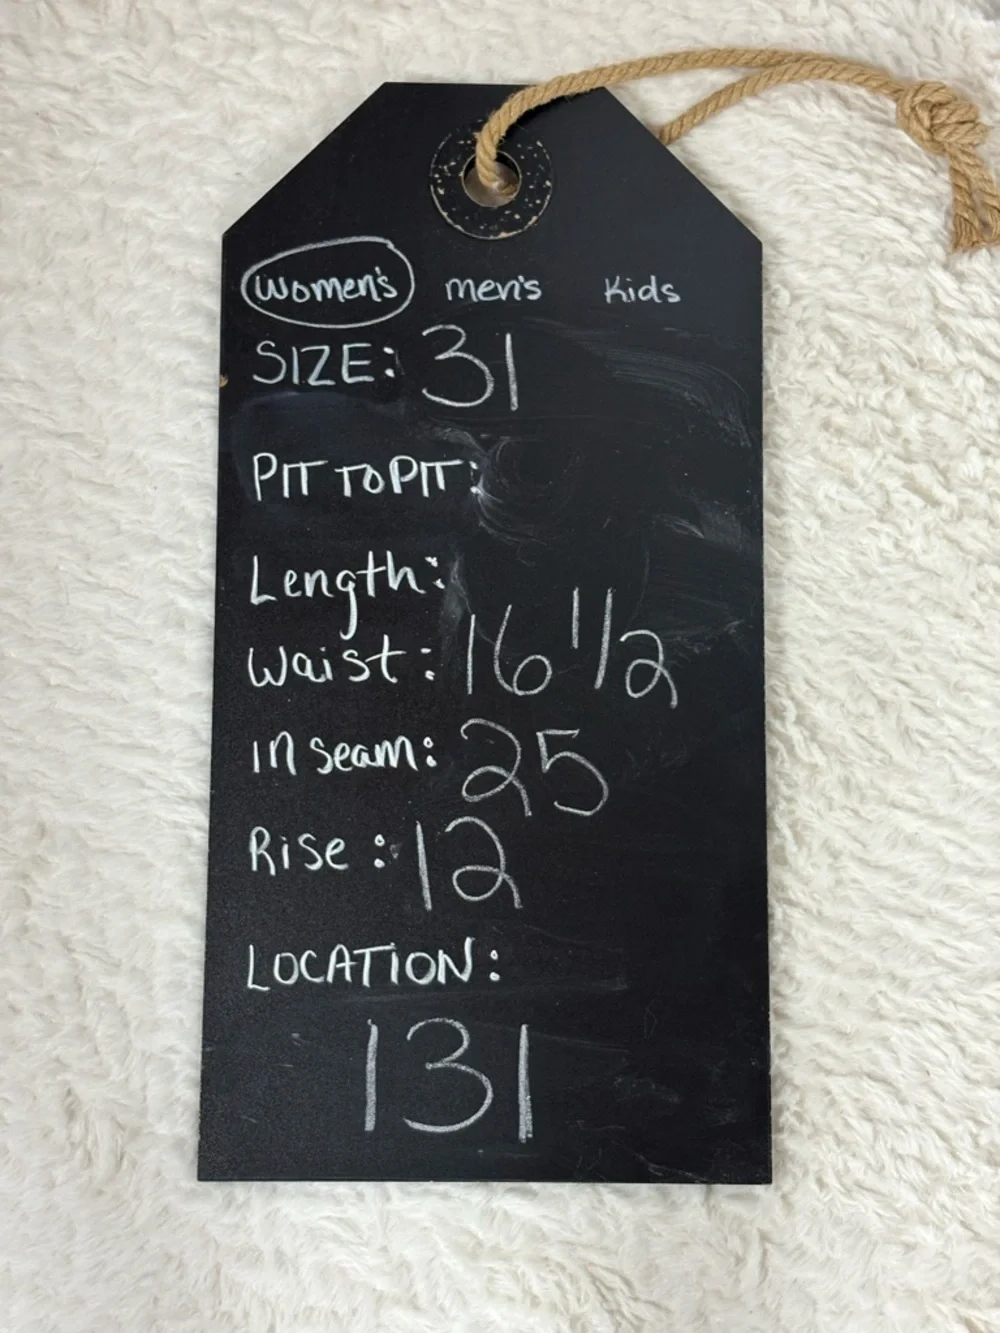 women's men's Kids
SIZE: 31
PIT TO PIT:
Length:
Waist: 16 1/2
in seam: 25
Rise: 12
LOCATION:
131